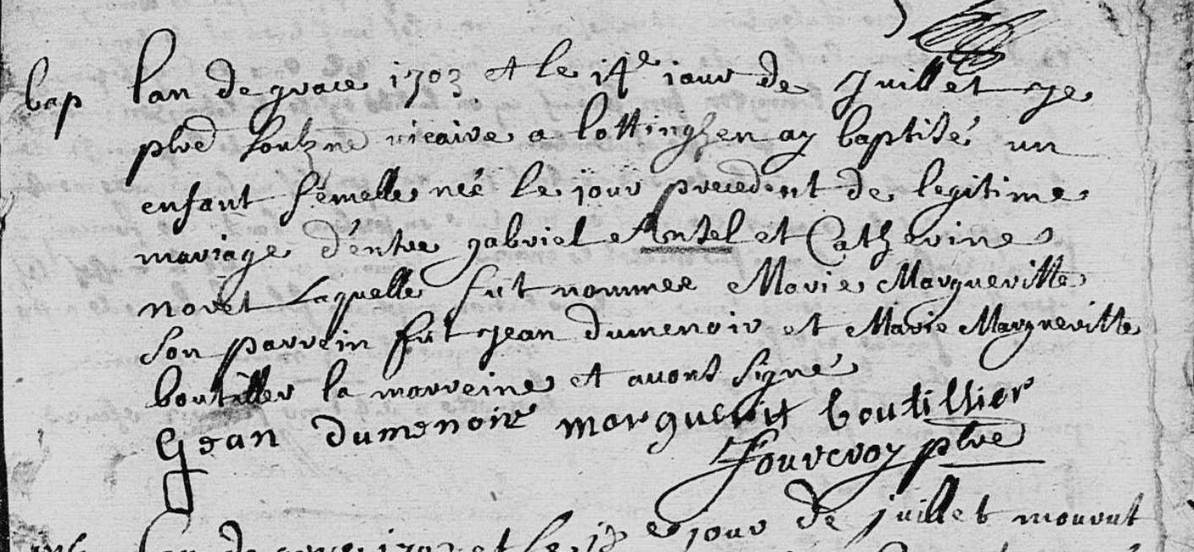 bap lan de grace 1703 et le 14e iour de Juillet je
pbre vicaire a lottinghen ay baptisé un
enfant femelle née le jour precedent de legitime
mariage d'entre gabriel Ansel et Catherine
noret Laquelle fut nommee Marie Margueritte
son parrein fut jean dumenoir et Marie Margueritte
boutiller la marreine et avons signé
Jean dumenoir marguerit boutillier
Fourcroy pbre
lan de grace 1703 et le jour de juillet mourut